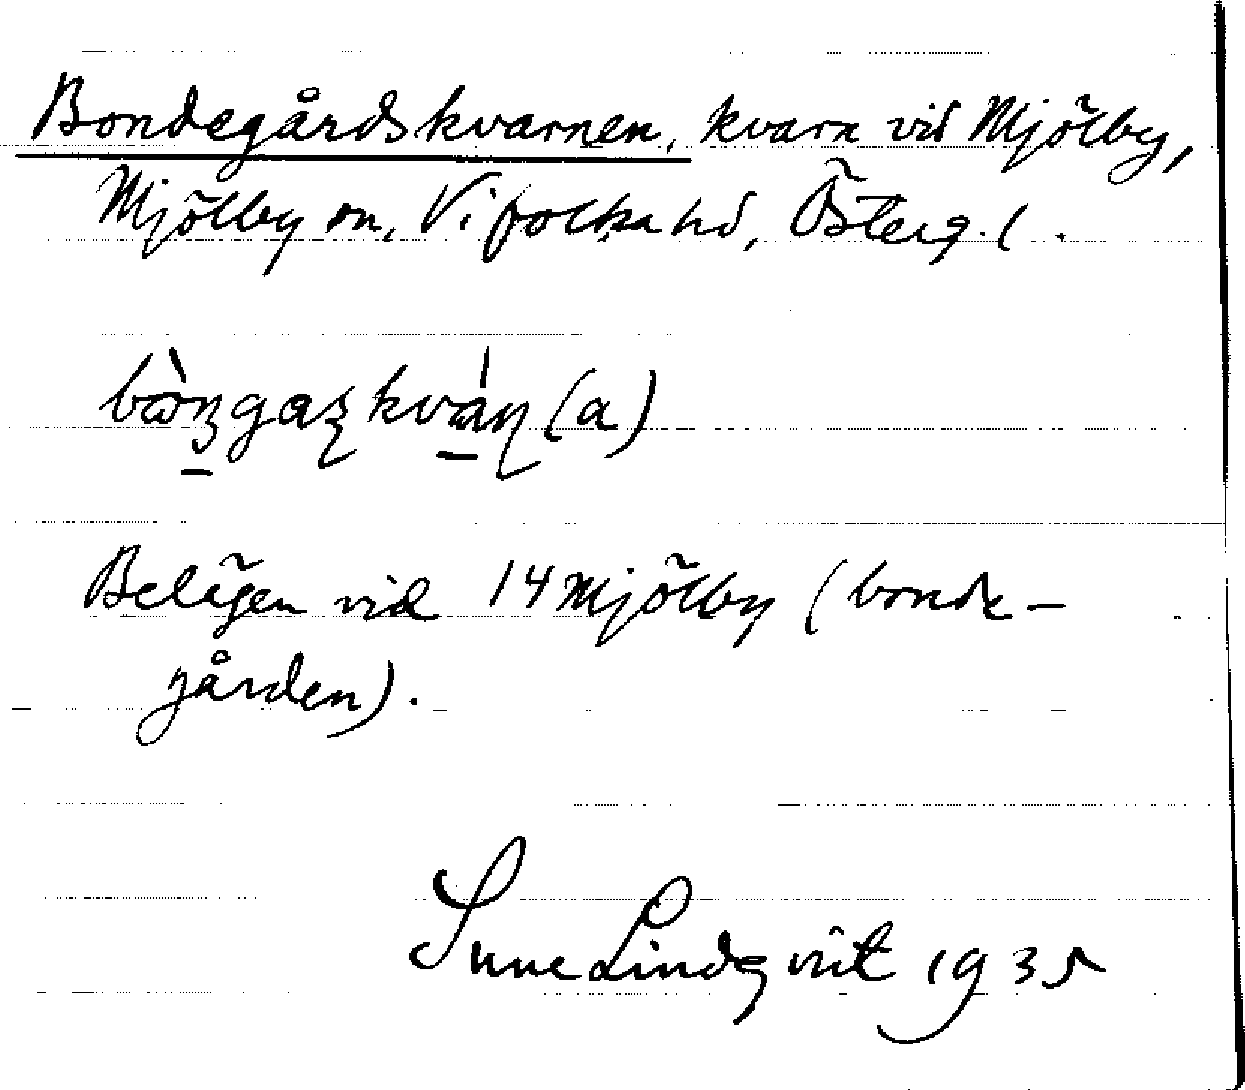 Bondegårdskvarnen, kvarn vid Mjölby,
Mjölby sn, Vifolka hd, Österg. l.
Belägen vid 14 Mjölby (bonde-
gården).
Sune Lindqvist 1935